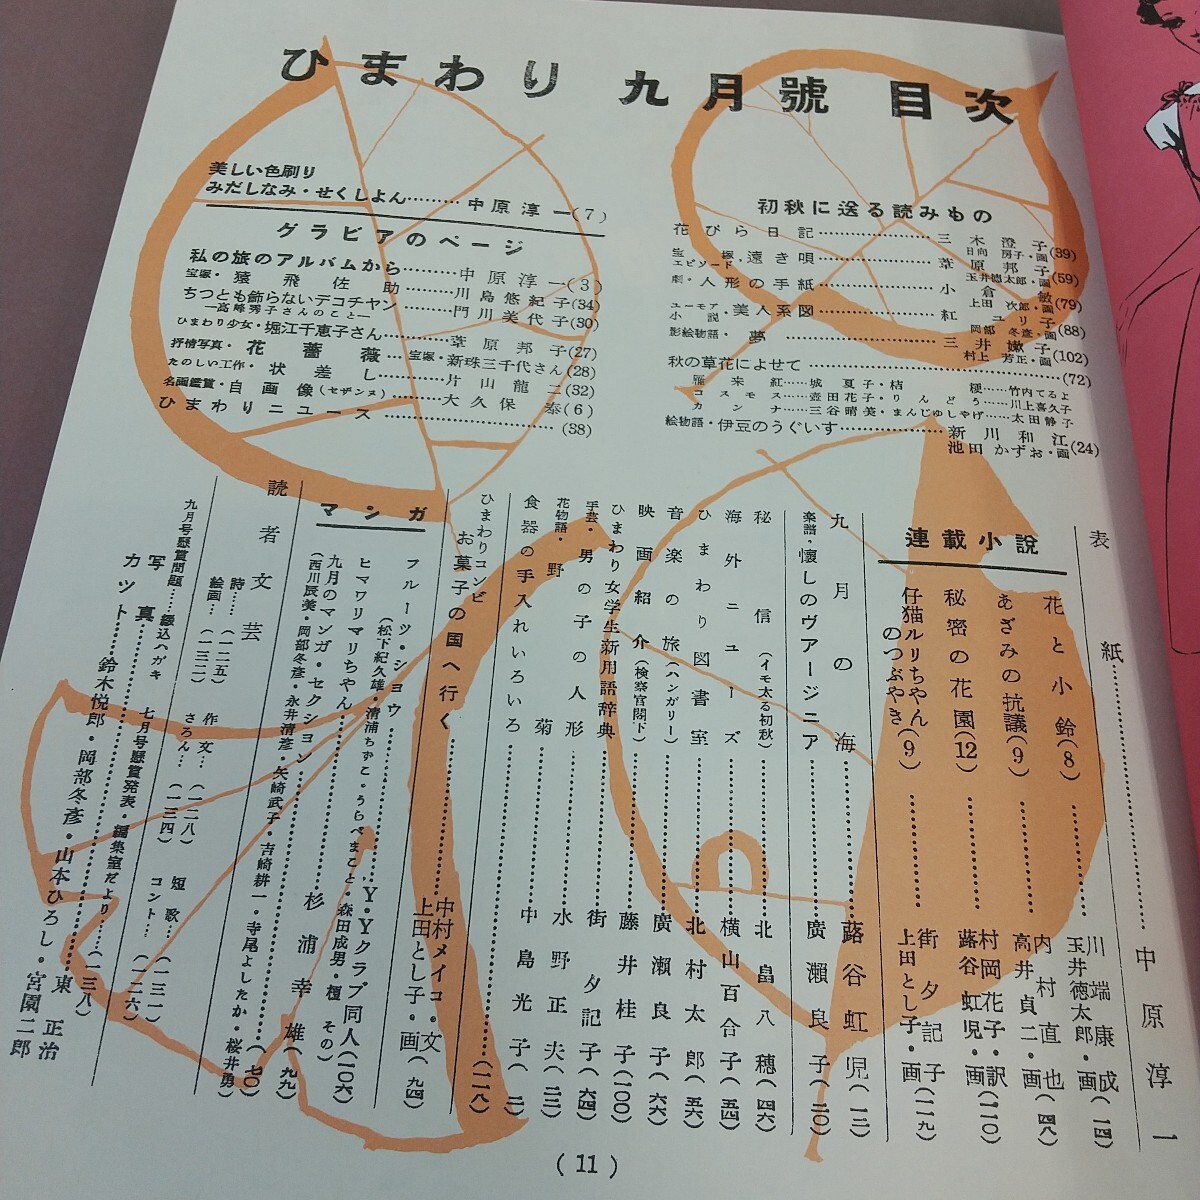 ひまわり 九月號 目次
美しい色刷り
みだしなみ・せくしよん………中原淳一(7)
グラビアのページ
私の旅のアルバムから………中原淳一(3)
宝塚・猿飛佐助………川島悠紀子(34)
ちつとも飾らないデコチヤン………門川美代子(30)
―高峰秀子さんのこと―
ひまわり少女・堀江千恵子さん………葦原邦子(27)
抒情写真・花薔薇………宝塚・新珠三千代さん(28)
たのしい工作・状差し………片山龍二(32)
名画鑑賞・自画像(セザンヌ)………大久保泰(6)
ひまわりニュース………(38)
初秋に送る読みもの
花びら日記………三木澄子(39)
日向房子・画
宝塚エピソード・遠き唄………葦原邦子(59)
玉井徳太郎・画
劇・人形の手紙………小倉敏(79)
上田次郎・画
ユーモア小説・美人系図………紅ユリ子(88)
岡部冬彦・画
影絵物語・夢………三井嫩子(102)
村上芳正・画
秋の草花によせて………(72)
雁来紅……城夏子・桔梗……竹内てるよ
コスモス……壺田花子・りんどう……川上喜久子
カンナ……三谷晴美・まんじゆしやげ……太田静子
絵物語・伊豆のうぐいす………新川和江(24)
池田かずお・画
表紙………中原淳一
連載小説
花と小鈴(8)………川端康成(一四)
玉井徳太郎・画
あざみの抗議(9)………内村直也(四八)
高井貞二・画
秘密の花園(12)………村岡花子・訳(一一〇)
蕗谷虹児・画
仔猫ルリちやんのつぶやき(9)………街夕記子(一一九)
上田とし子・画
九月の海………蕗谷虹児(一二)
楽譜・懐しのヴアージニア………廣瀬良子(二〇)
秘信(イモ太る初秋)………北畠八穂(四六)
海外ニユーズ………横山百合子(五四)
ひまわり図書室………北村太郎(五六)
音楽の旅(ハンガリー)………廣瀬良子(六六)
映画紹介(検察官閣下)………藤井桂子(一〇〇)
ひまわり女学生新用語辞典………街夕記子(六四)
手芸・男の子の人形………水野正夫(二二)
花物語・野菊………中島光子(二一)
食器の手入れいろいろ………(一一八)
ひまわりコンビ
お菓子の国へ行く………中村メイコ・文(九四)
上田とし子・画
マンガ
フルーツ・シヨウ………Y・Yクラブ同人(一〇六)
(松下紀久雄・清浦ちずこ・うらべまこと・森田成男・榎その)
ヒマワリマリちやん………杉浦幸雄(九九)
九月のマンガ・セクシヨン………(七〇)
(西川辰美・岡部冬彦・永井清彦・矢崎武子・吉崎耕一・寺尾よしたか・桜井勇)
読者文芸
詩……(一二五) 作文…(一二八) 短歌…(一三一)
絵画…(一三二) さろん…(一三四) コント…(一二六)
九月号懸賞問題……綴込ハガキ 七月号懸賞発表・編集室だより……(一三八)
写真………東正治
カツト………鈴木悦郎・岡部冬彦・山本ひろし・宮園二郎
(11)